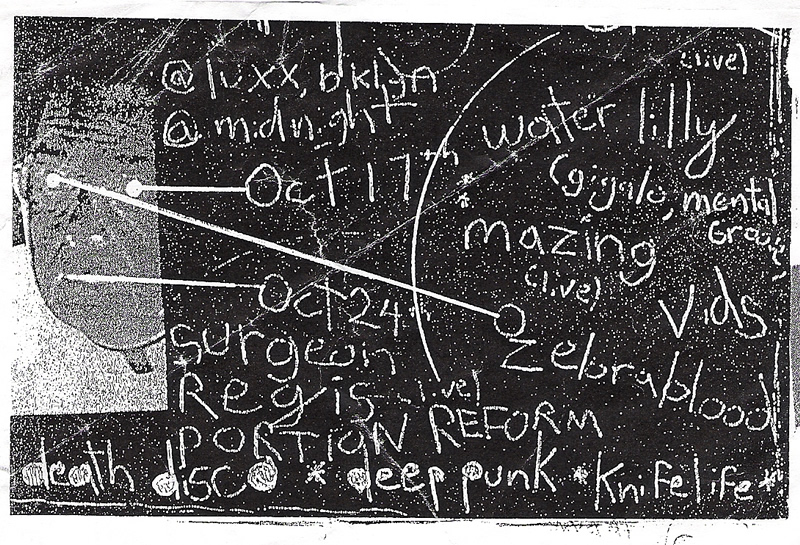 @ luxx, bklyn
@ midnight
Oct 17th
Oct 24th
surgeon
Regis (live)
PORTION REFORM
(live)
water lilly
(gigalo, mental
groove
mazing
(live)
vids
zebrablood
death disco * deep punk * Knifelife *